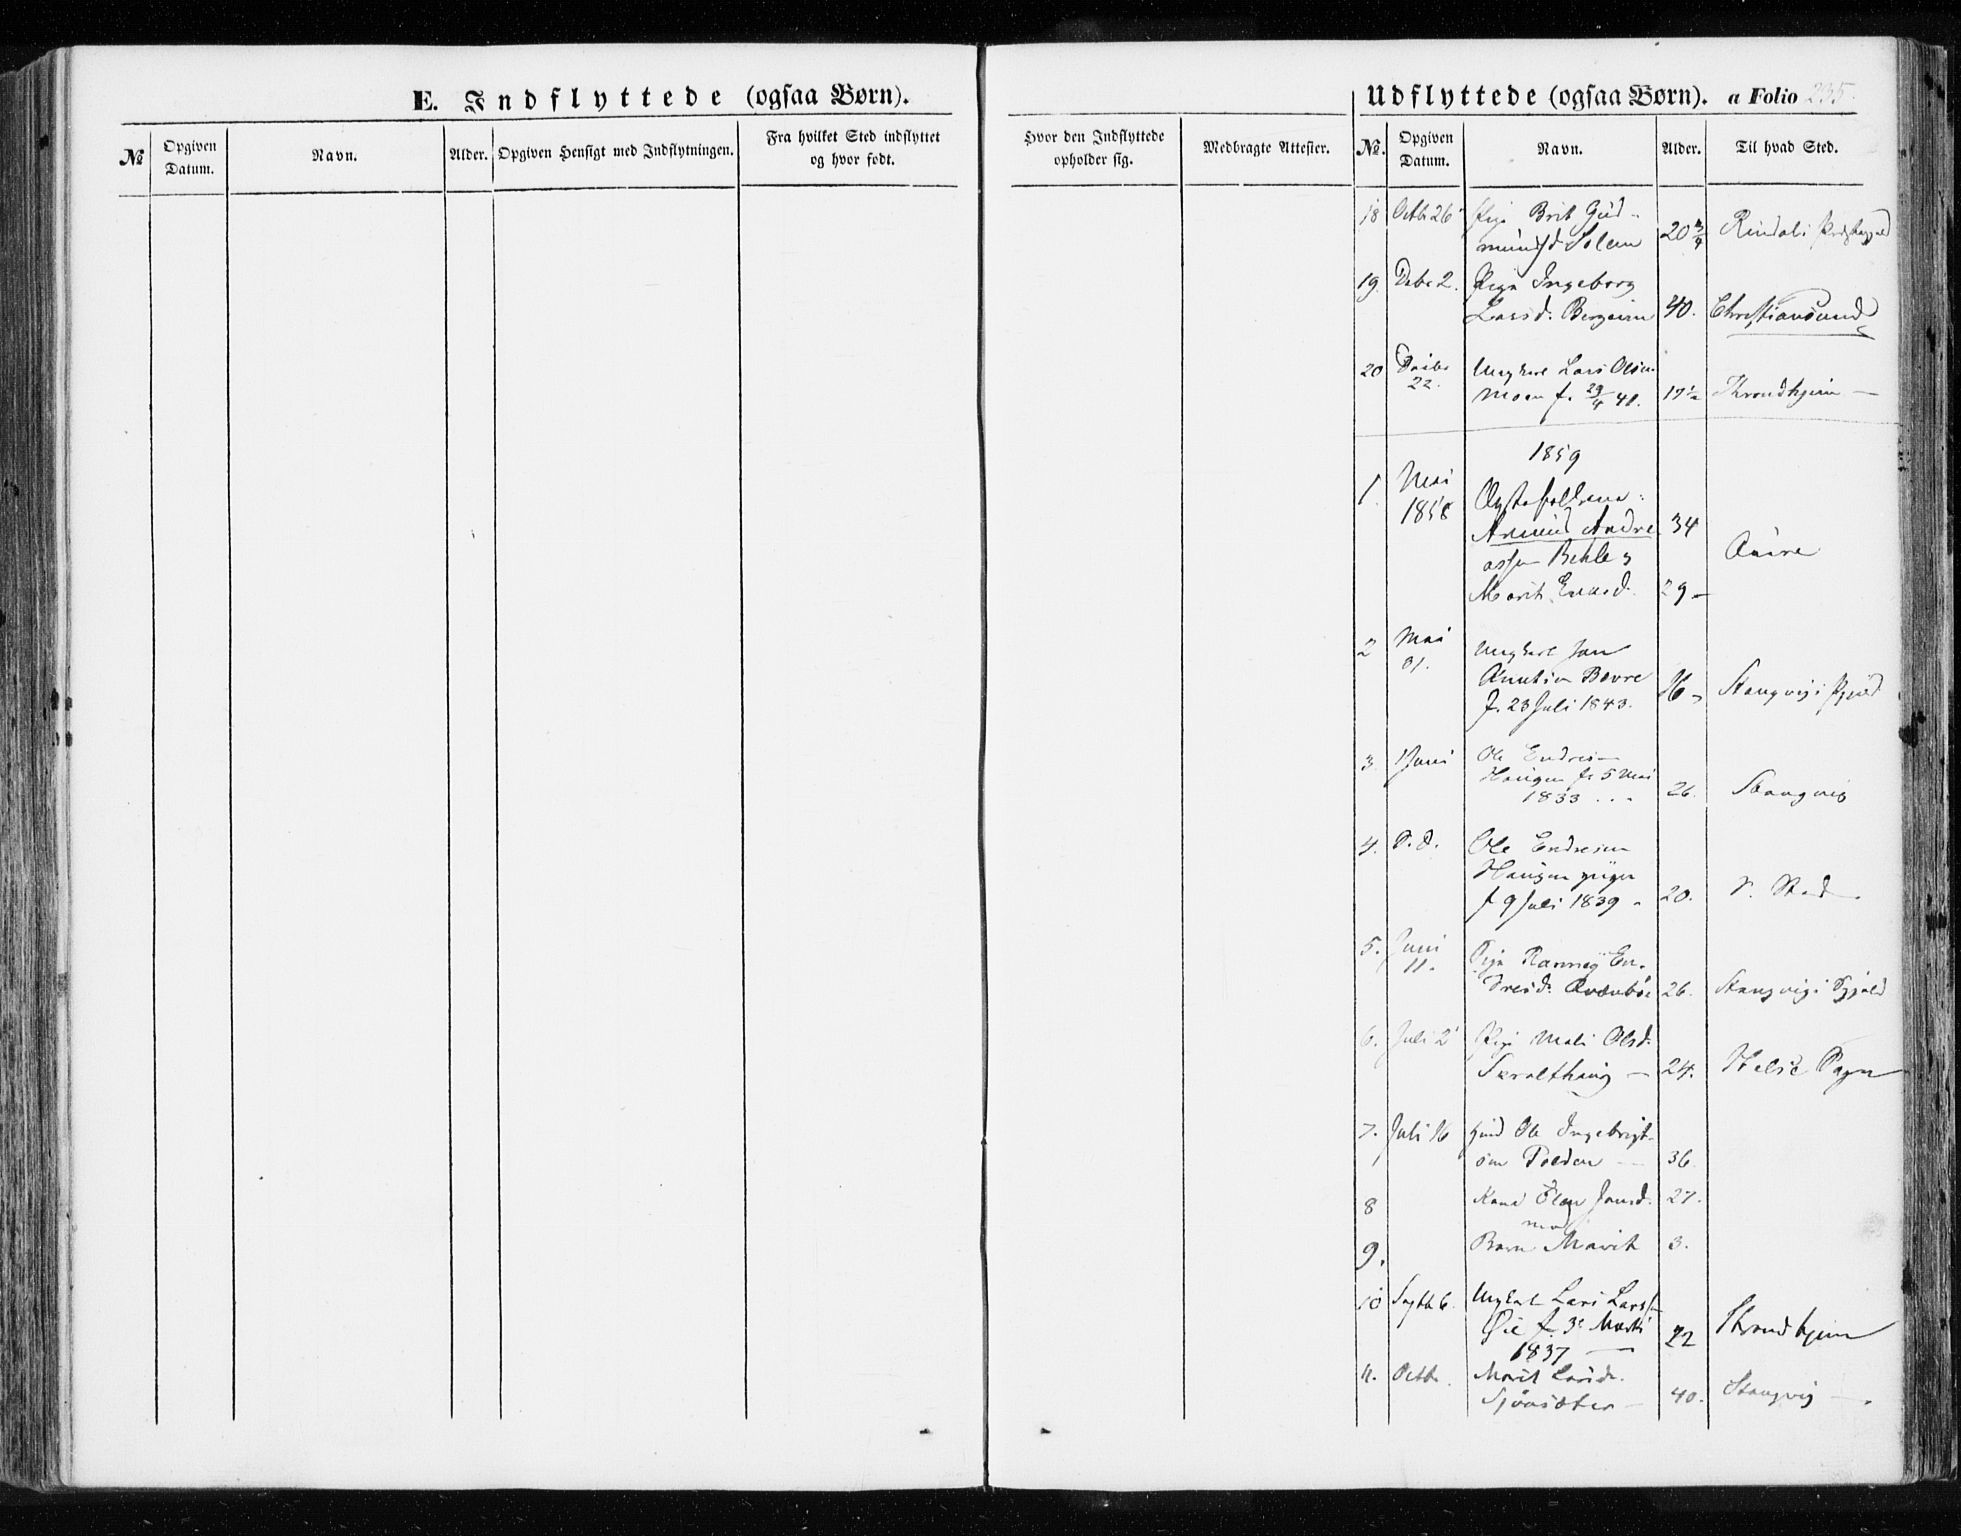 E. Indflyttede (ogsaa Børn).
Udflyttede (ogsaa Børn). a Folio 235.
№ Opgiven Datum. Navn. Alder. Opgiven Hensigt med Indflytningen. Fra hvilket Sted indflyttet og hvor født.
Hvor den Indflyttede opholder sig. Medbragte Attester. №. Opgiven Datum. Navn. Alder. Til hvad Sted.
18 Octb 26 Pige Brit Gud-
mundsd Solem 20 3/4 Rindals
19. Debr 2. Pige Ingeborg
Larsd. Bergeim 40. Christiansund
20 Decbr Ungkarl Lars Olsen
22. Moen f. 29/4 41. 17 1/2 Throndhjem —
1859
1. Mai
1858 Ægtefolkene:
Arnund Andre 34
assen Behle Aure
Marit Enasd. 29 —
2 Mai Ungkarl Jon
31. Knutsen Bævre
f. 23 Juli 1843. 16 Stangvigs Pgjeld
3. 1 Juni Ole Endresen
Haugen f. 5 Mai
1833 . . . 26. Stangvig
4. D. d. Ole Endresen
Haugen yngre
f 9 Juli 1839 20. S. Sted
5. Juni Pige Rannei En-
11. dresd. 26. Stangvigs Pgjeld
6. Juli 2 Pige Mali Olsd.
Skralthaug — 24. Halse Sogn
7. Juli 16 Ole Ingebrigt-
sen 36.
8 Kone Elen Jonsd. 27.
med
9. Barn Marit 3.
10 Septb 6. Ungkarl Lars Larss
Øie f. 3 Marts
1837 — 22 Throndhjem
11. Octb. Marit Larsd.
Sjøasæter — 40. Stangvig —